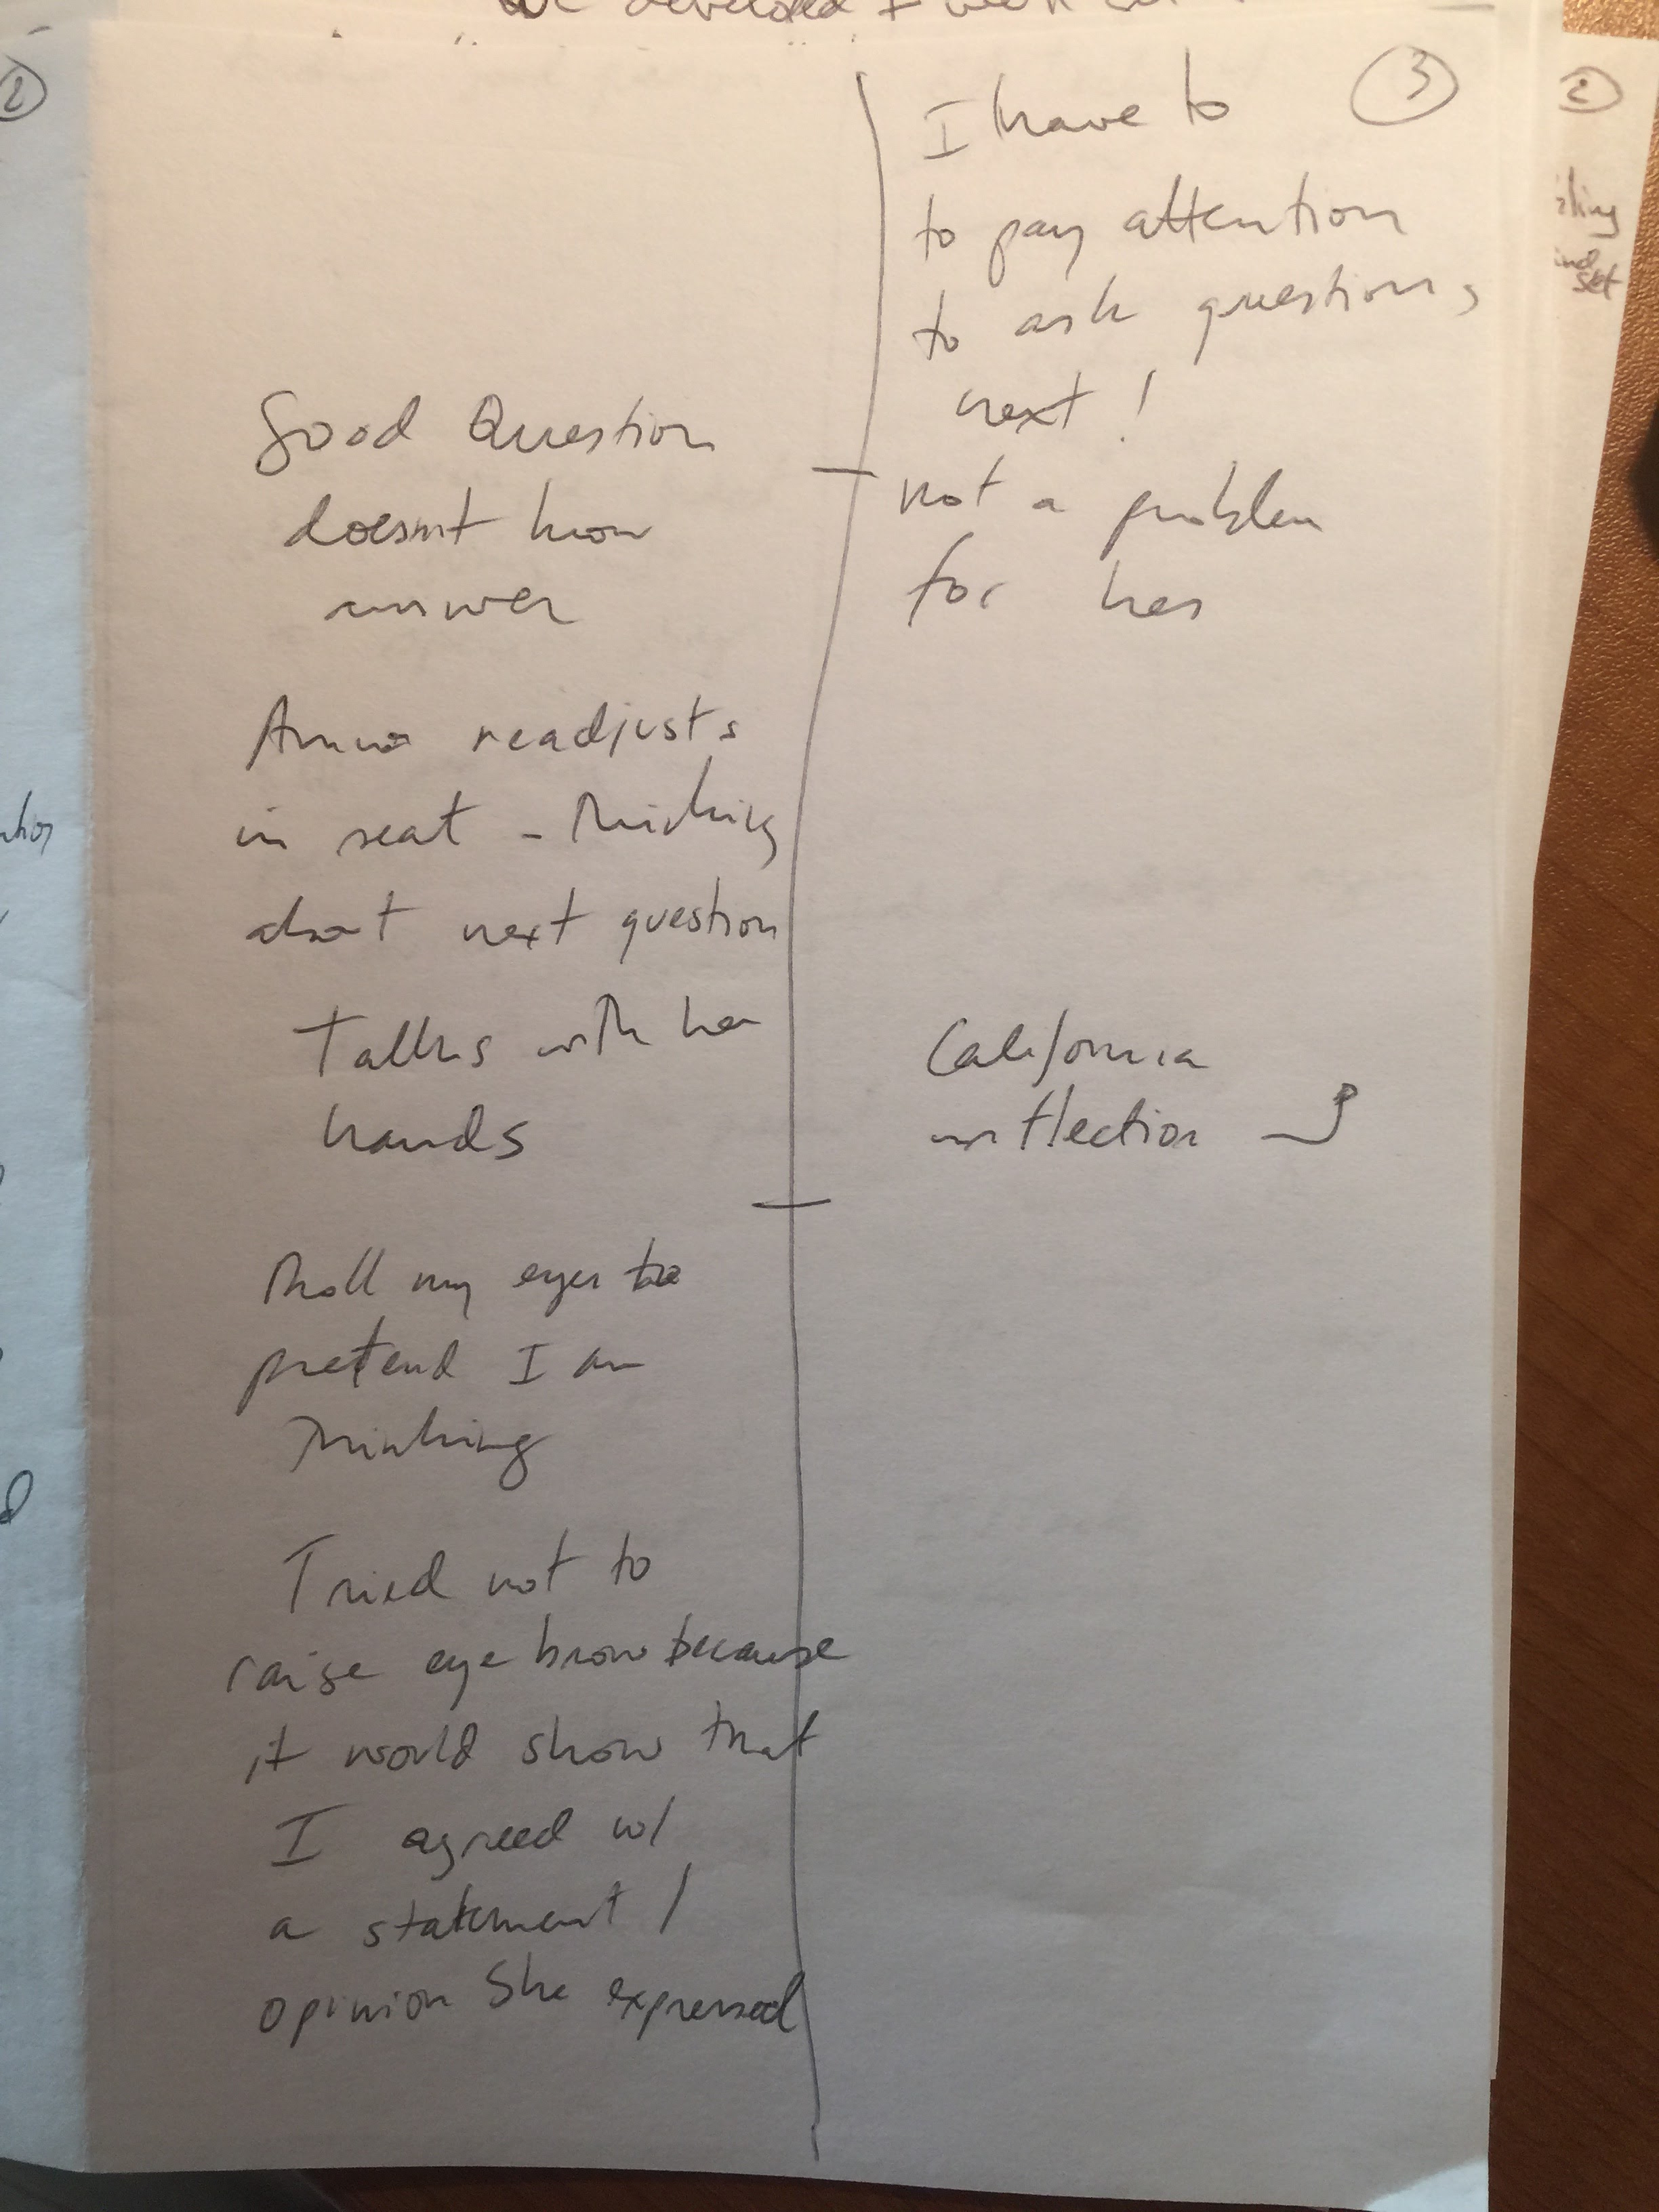 we developed I
3
I have to
to pay attention
to ask questions
next!
Good Question
doesnt know
answer
not a problem
for her
Anna readjusts
in seat - Thinking
about next question
Talks with her
hands
California
inflection
Roll my eyes to
pretend I am
Thinking
Tried not to
raise eye brow because
it would show that
I agreed w/
a statement /
opinion She expressed
2
2
set